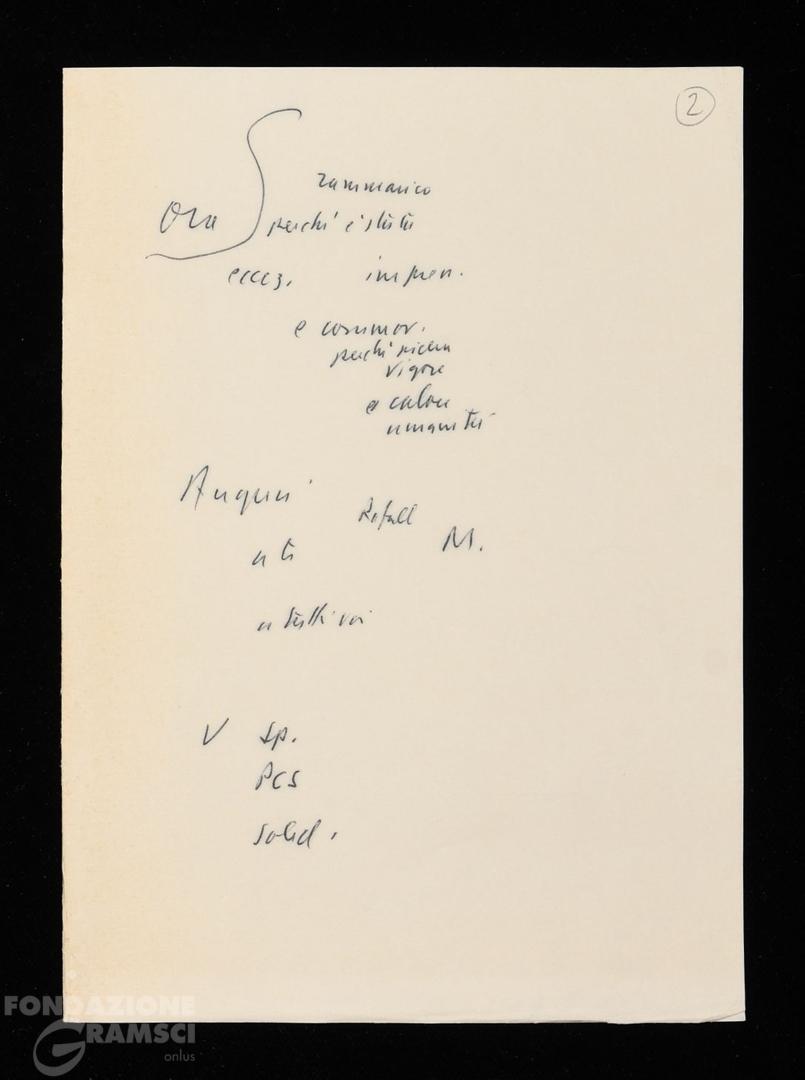 2
rammarico
ora perché è stata
eccez. impren.
e commov.
perché
vigore
e calore
umanità
Auguri
Rafael
a te M.
a tutti voi
V Sp.
PCS
Solid.
FONDAZIONE
GRAMSCI
onlus